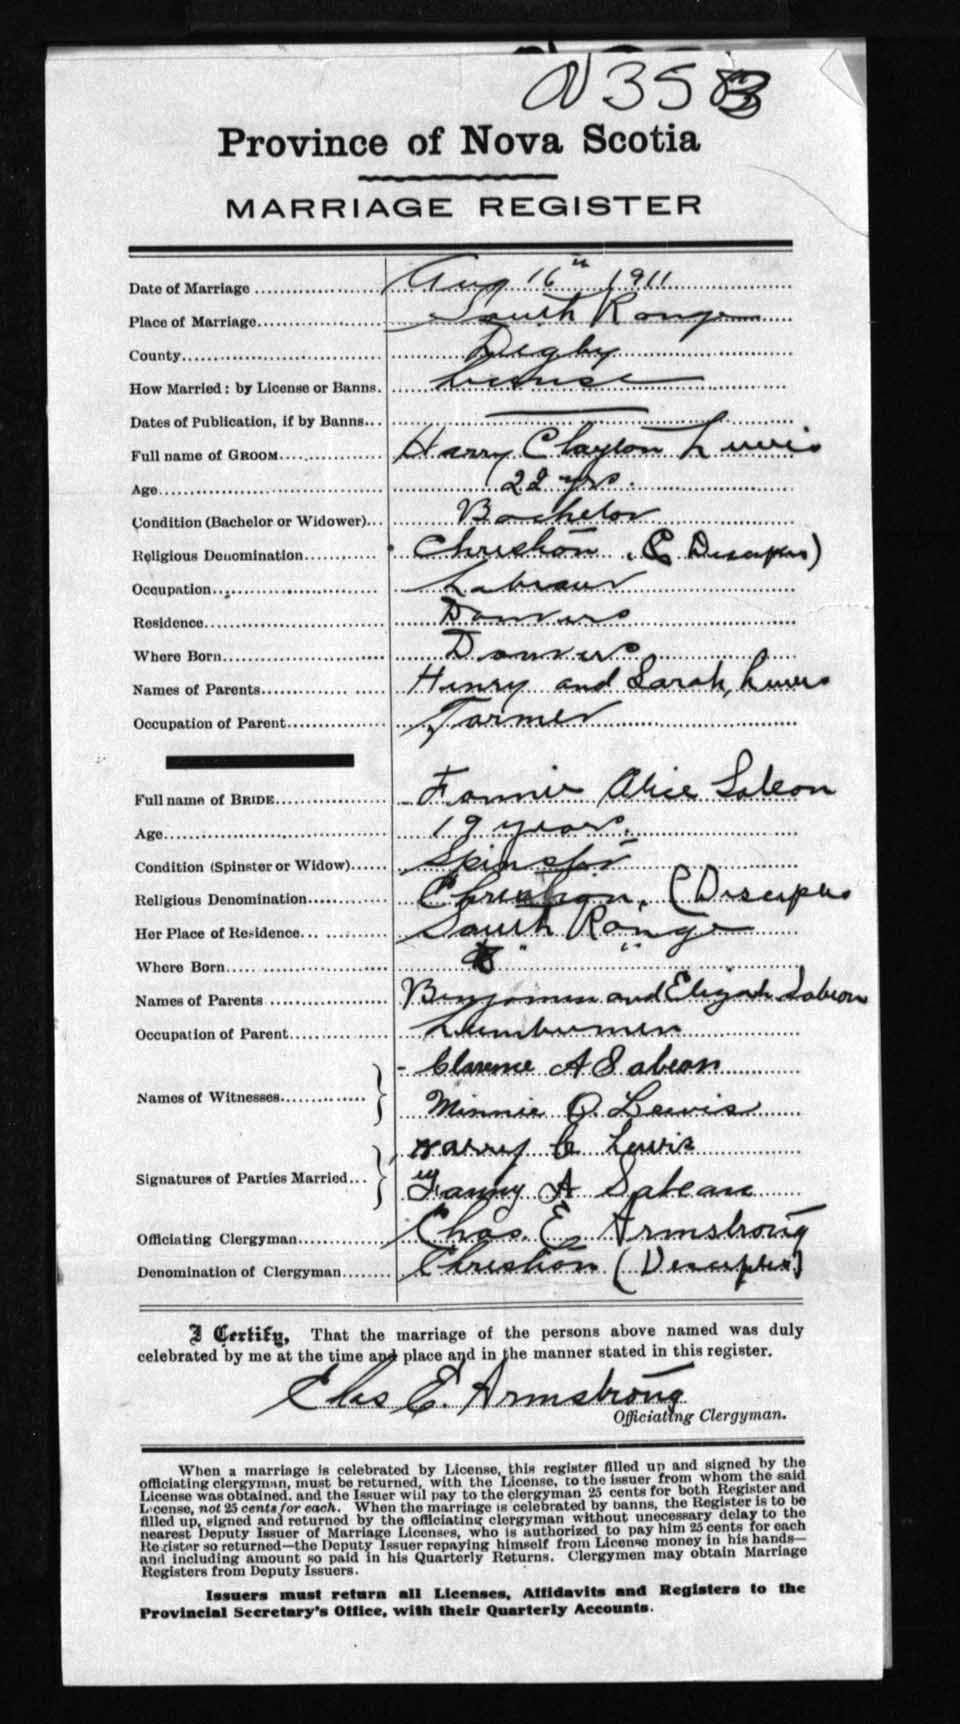 N 3583
Province of Nova Scotia
MARRIAGE REGISTER
Date of Marriage Aug 16th 1911
Place of Marriage South Range
County Digby
How Married: by License or Banns. License
Dates of Publication, if by Banns
Full name of GROOM Harry Clayton Lewis
Age 22 yrs.
Condition (Bachelor or Widower) Bachelor
Religious Denomination Christian (Disciples)
Occupation Labrour
Residence Danvers
Where Born Danvers
Names of Parents Henry and Sarah Lewis
Occupation of Parent Farmer
Full name of BRIDE Fannie Alice Sabean
Age 19 years.
Condition (Spinster or Widow) Spinster
Religious Denomination Christian, (Disciples
Her Place of Residence South Range
Where Born " "
Names of Parents Benjamin and Elizah Sabean
Occupation of Parent Lumbermen
Names of Witnesses Clarence A Sabean
Minnie O. Lewis
Signatures of Parties Married Harry C Lewis
Fanny A Sabean
Officiating Clergyman Chas. E. Armstrong
Denomination of Clergyman Christian (Disciples)
I Certify, That the marriage of the persons above named was duly
celebrated by me at the time and place and in the manner stated in this register.
Chas E. Armstrong
Officiating Clergyman.
When a marriage is celebrated by License, this register filled up and signed by the
officiating clergyman, must be returned, with the License, to the issuer from whom the said
License was obtained, and the Issuer will pay to the clergyman 25 cents for both Register and
License, not 25 cents for each. When the marriage is celebrated by banns, the Register is to be
filled up, signed and returned by the officiating clergyman without unnecessary delay to the
nearest Deputy Issuer of Marriage Licenses, who is authorized to pay him 25 cents for each
Register so returned—the Deputy Issuer repaying himself from License money in his hands—
and including amount so paid in his Quarterly Returns. Clergymen may obtain Marriage
Registers from Deputy Issuers.
Issuers must return all Licenses, Affidavits and Registers to the
Provincial Secretary's Office, with their Quarterly Accounts.